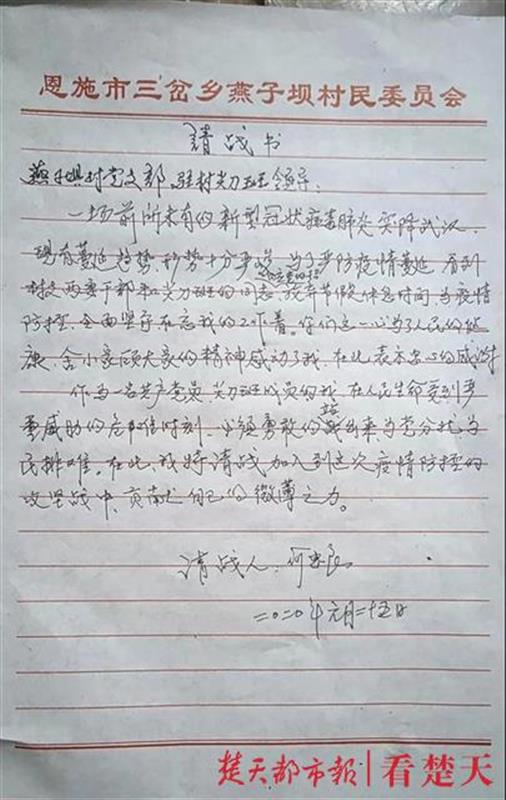 恩施市三岔乡燕子坝村民委员会
请战书
燕子坝村党支部、驻村尖刀班领导:
一场前所未有的新型冠状病毒肺炎突降武汉,
现有蔓延趋势,形势十分严峻。为了严防疫情蔓延,看到
村支两委干部和尖刀班的同志放弃节假休息时间为疫情
防控,全面坚守忘我的工作着。你们这一心为了人民的健
康,舍小家顾大家的精神感动了我,在此表示衷心的感谢!
作为一名共产党员、尖刀班成员的我,在人民生命受到严
重威胁的危难时刻,必须勇敢的站出来为党分忧,为
民排难。在此,我特请战加入到这次疫情防控的
攻坚战中,贡献自己的微薄之力。
请战人:何
二〇二〇年元月二十五日
楚天都市报|看楚天